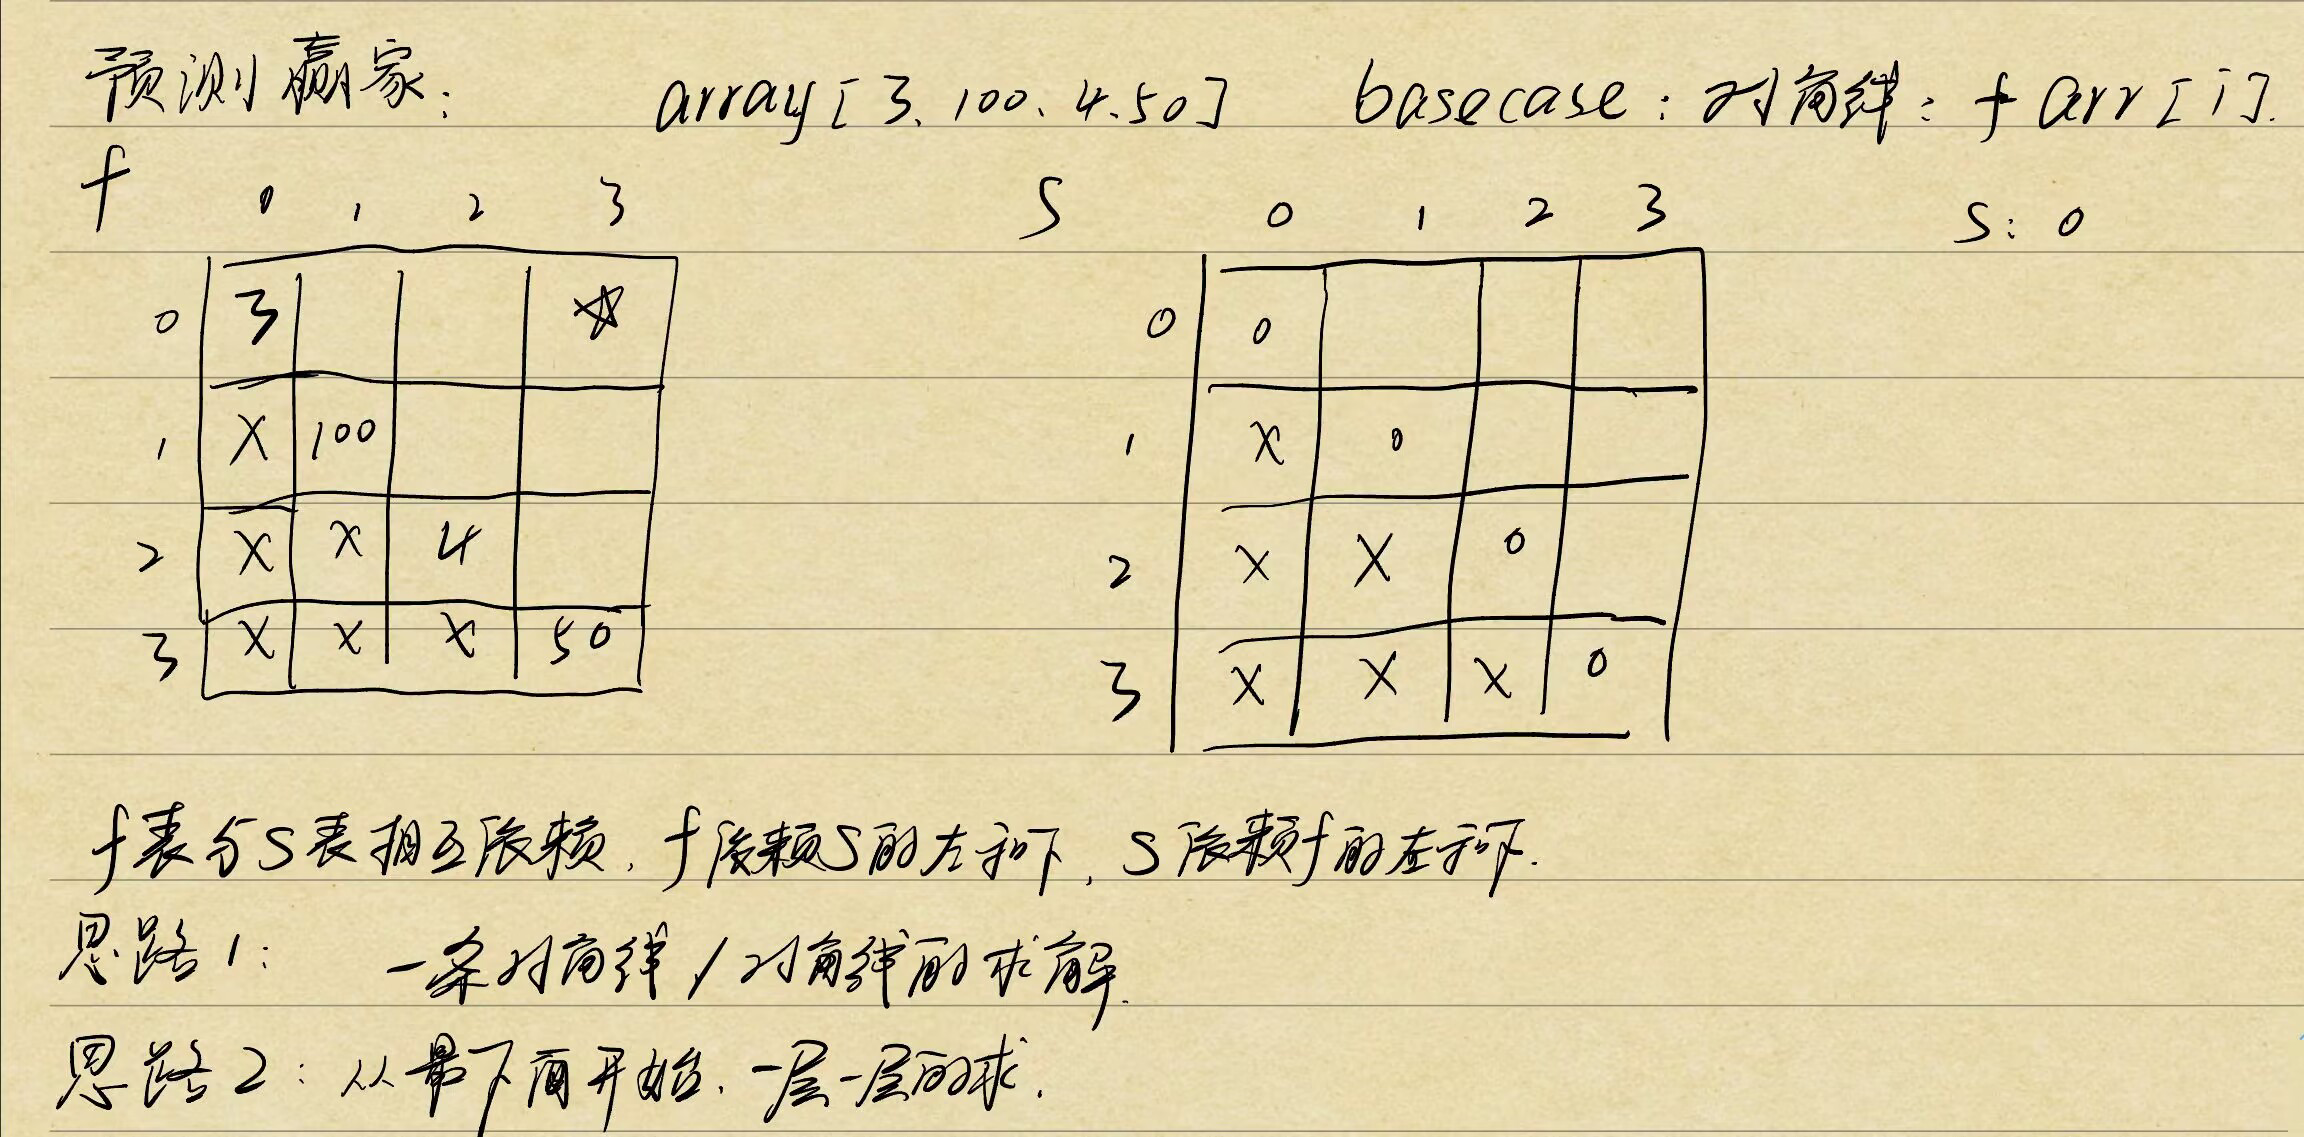 预测赢家： array[3、100、4、50] basecase：对角线：f arr[i].
f 0 1 2 3 S 0 1 2 3 S: 0
0 3 ☆ 0 0
1 X 100 1 X 0
2 X X 4 2 X X 0
3 X X X 50 3 X X X 0
f表与S表相互依赖，f依赖S的左和下，S依赖f的左和下.
思路1： 一条对角线/对角线的求解.
思路2：从最下面开始、一层一层的求.